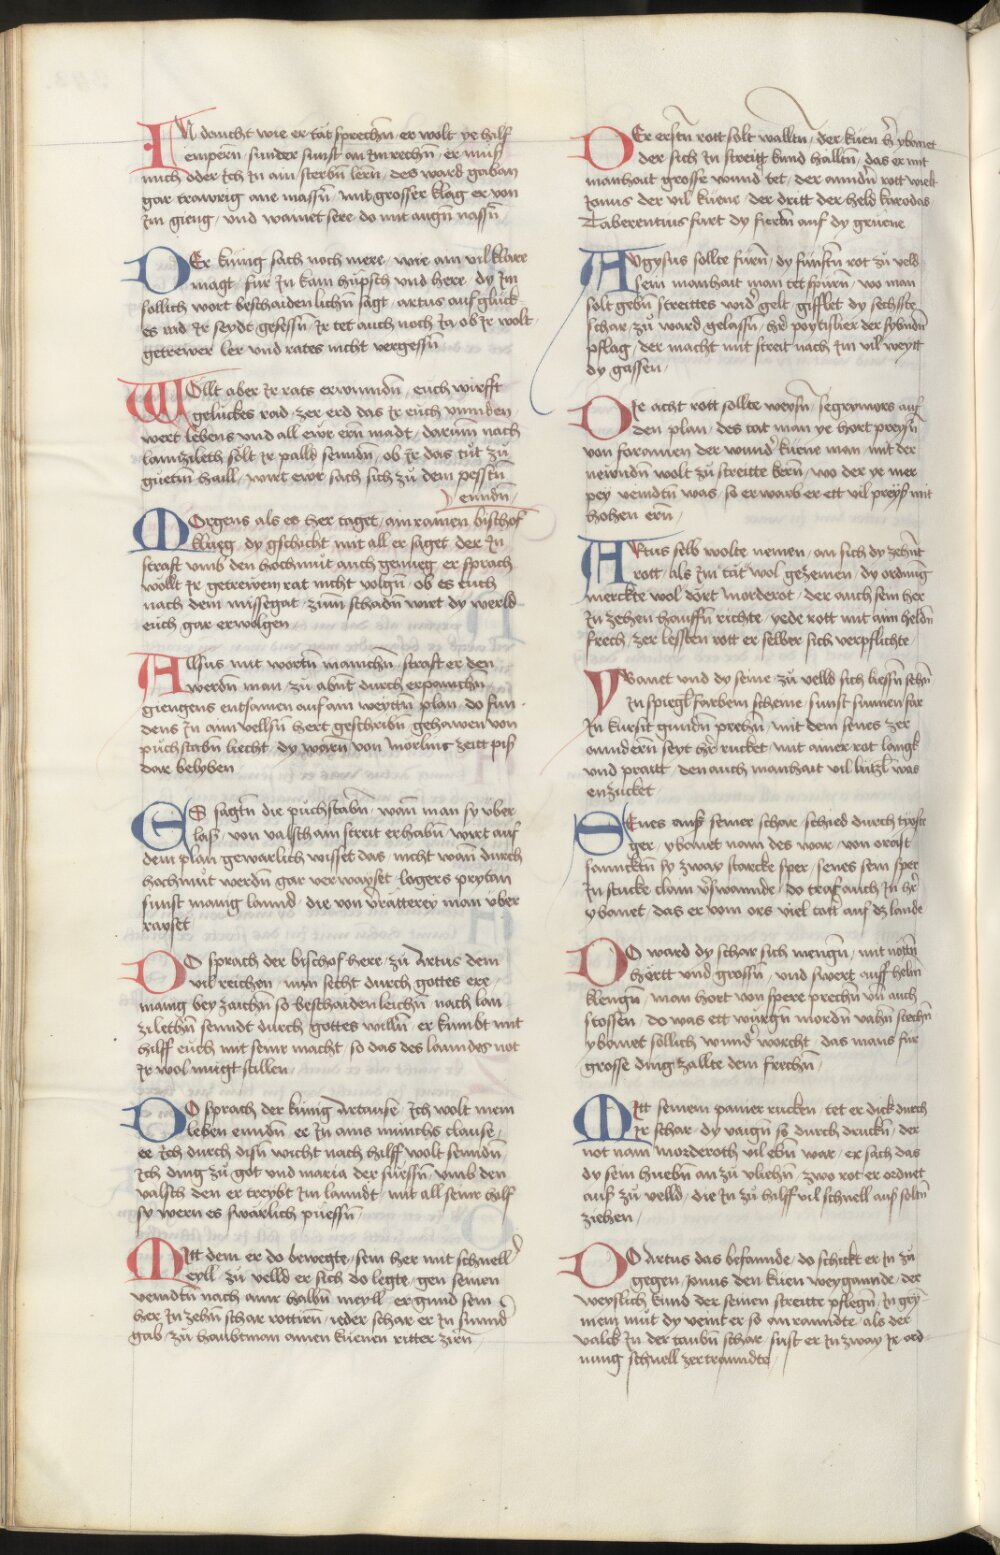 IN daucht wie er tät sprechn̄ er wolt ye hilf
empern̄ sunder sunst an Im rechn̄ er mǖs
mich oder Ich In am sterbn̄ lern̄ des ward gaban
gar trawrig ane massn̄ mit grosser klag er von
Im gieng und wainet sere do mit augn̄ nassn̄
DEr künig sach noch mere wie ain vil klare
magt für In kam hüpsch und here dy Im
söllich wort beschaidenlichn̄ sagt artus auf glück
es rad Ir seydt gesessn̄ Ir tet auch noch Ja ob Ir wolt
getrewer ler und rates nicht vergessn̄
WÖllt aber Ir rats erwinndn̄ euch wirfft
gelückes rad zer erd das Ir euch vinnden
wert lebens und all ewr ern̄ madt darum̄ nach
lannzileth sölt Ir palld senndn̄ ob Ir das tüt zu
guetm̄ haill wirt ewr sach sich zu dem pesstn̄
enndn̄
MOrgens als es her taget ain ramen bischof
klueg dy gschicht mit all er saget der In
straft umb den hochmut auch genueg er sprach
wöllt Ir getrewem rat nicht volgn̄ ob es euch
nach dem missegat zum̄ schadn̄ wirt dy werld
euch gar erwolgen
Allsus mit wortn̄ manichn̄ straft er den
werdn̄ man zu abnt durch erpanichn̄
giengens entsamen auf am weyttn̄ plan do fun
dens In ainn vellsn̄ hert geschribn̄ gehawen von
püchstabn̄ liecht dy warn̄ von Merlins zeitt pis
dar belyben
ES sagtn̄ die püchstabn̄ wan̄ man sy über
las von valscham streit erhabn̄ wirt auf
dem plan gewarlich wisset das nicht wan̄ durch
hochmut werdn̄ gar verwayset logers prytan
sunst manig lannd die von v̄rätterey man über
rayset
DO sprach der bischof here zu Artus dem
vil reichen nun secht durch gottes ere
manig bey zaichn̄ so beschaidenleichn̄ nach lan
zilethn̄ senndt durch gottes willn̄ er kumbt mit
hilff euch mit seinr macht so das des lanndes not
Ir wol mugt stillen
DO sprach der künig Artause Ich wolt mein
leben enndn̄ er In ains münchs clause
er Ich durch disn̄ wicht nach hilff wolt senndn̄
Ich ding zu got und maria der süessn̄ umb den
valsch den er treybt Im lanndt mit all seinr hilf
sy wern es swärlich püessn̄
MItt dem er do bewegte sein her mit schneller
eyll zu velld er sich do legte gen seinen
veindtn̄ nach ainr halbn̄ meyll er gund sein
her In zehn̄ schar rottirn̄ ieder schar er In sunnd
gab zu haubtman ainen küenen ritter zirn̄
DEr erstn̄ rott solt walltn̄ der küen h̄r ybanet
der sich In streitt kund halltn̄ das er mit
manhait grosse wund tet der anndn̄ rott wielt
Jonus der vil küene der dritt der held karodas
Taberentius fürt dy fierdn̄ auf dy grüene
AUgysus sollte fürn̄ dy fünftn̄ rot zu veld
sein manhait man tet spürn̄ wo man
solt gebn̄ streittes wid̄ gelt gifflet dy sechste
schar zu ward gelassn̄ h̄r poytislier der sybndn̄
pflag der macht mit streit nach Im vil weytt
dy gassen
DIe acht rott sollte weysn̄ segrymors auf
den plan des tät man ye hort preysn̄
von foramen der wund̄ küene man mit der
neiwndn̄ wolt zu streitte kern̄ wo der ye mer
pey veindtn̄ was so erwarb er ett vil preys mit
hohen ern̄
ARtus selb wolte nemen an sich dy zehnt
rott als Im tät wol gezemen dy ordnūg
merckte wol dört Morderot der auch sein her
In zehen hauffn̄ richte yede rott mit ainn heldn̄
frech zer lessten rott er selber sich verpflichte
YBanet und dy seine zu velld sich liessn̄ sehn̄
In spiegl̄ farbem scheine sunst sunnenfar
In kürsit gundn̄ prehn̄ mit dem senes zer
anndern̄ seyt h̄r rucket mit ainer rot langk
und praitt den auch manhait vil lützl̄ was
enzucket
SEnes aus seiner schar schied durch tyoste
ger ybanet nam des war von orast
sanncktn̄ sy zway starcke sper senes sein sper
In stucke clain v̄swannde do traf auch In h̄r
ybanet das er vom ors viel tott auf dz lande
DO ward dy schar sich mengn̄ mit nöttn̄
hertt und grossn̄ und swert auff helm̄
klengn̄ man hort von spere prechn̄ un̄ auch
stossen do was ett würgn̄ mordn̄ vahn̄ stechn̄
ybanet söllich wund̄ worcht das mans für
grosse ding zallte dem frechn̄
MItt seinem panier rucken tet er dick durch
Ir schar dy vaign̄ so durch druckn̄ der
not nam Morderoth vil ebn̄ war er sach das
dy sein huebn̄ an zu vliehn̄ zwo rot er ordnet
aus zu velld die In zu hilff vil schnell aus soltn̄
ziehen
DO Artus das befannde do schickt er In zu
gegen Jonus den küen weygannde der
weyslich kund der seinen streitte pflegn̄ In gry
mem mut dy veint er so anranndte als der
valck In der taubn̄ schar sust er In zway Ir ord
nung schnell zertranndte